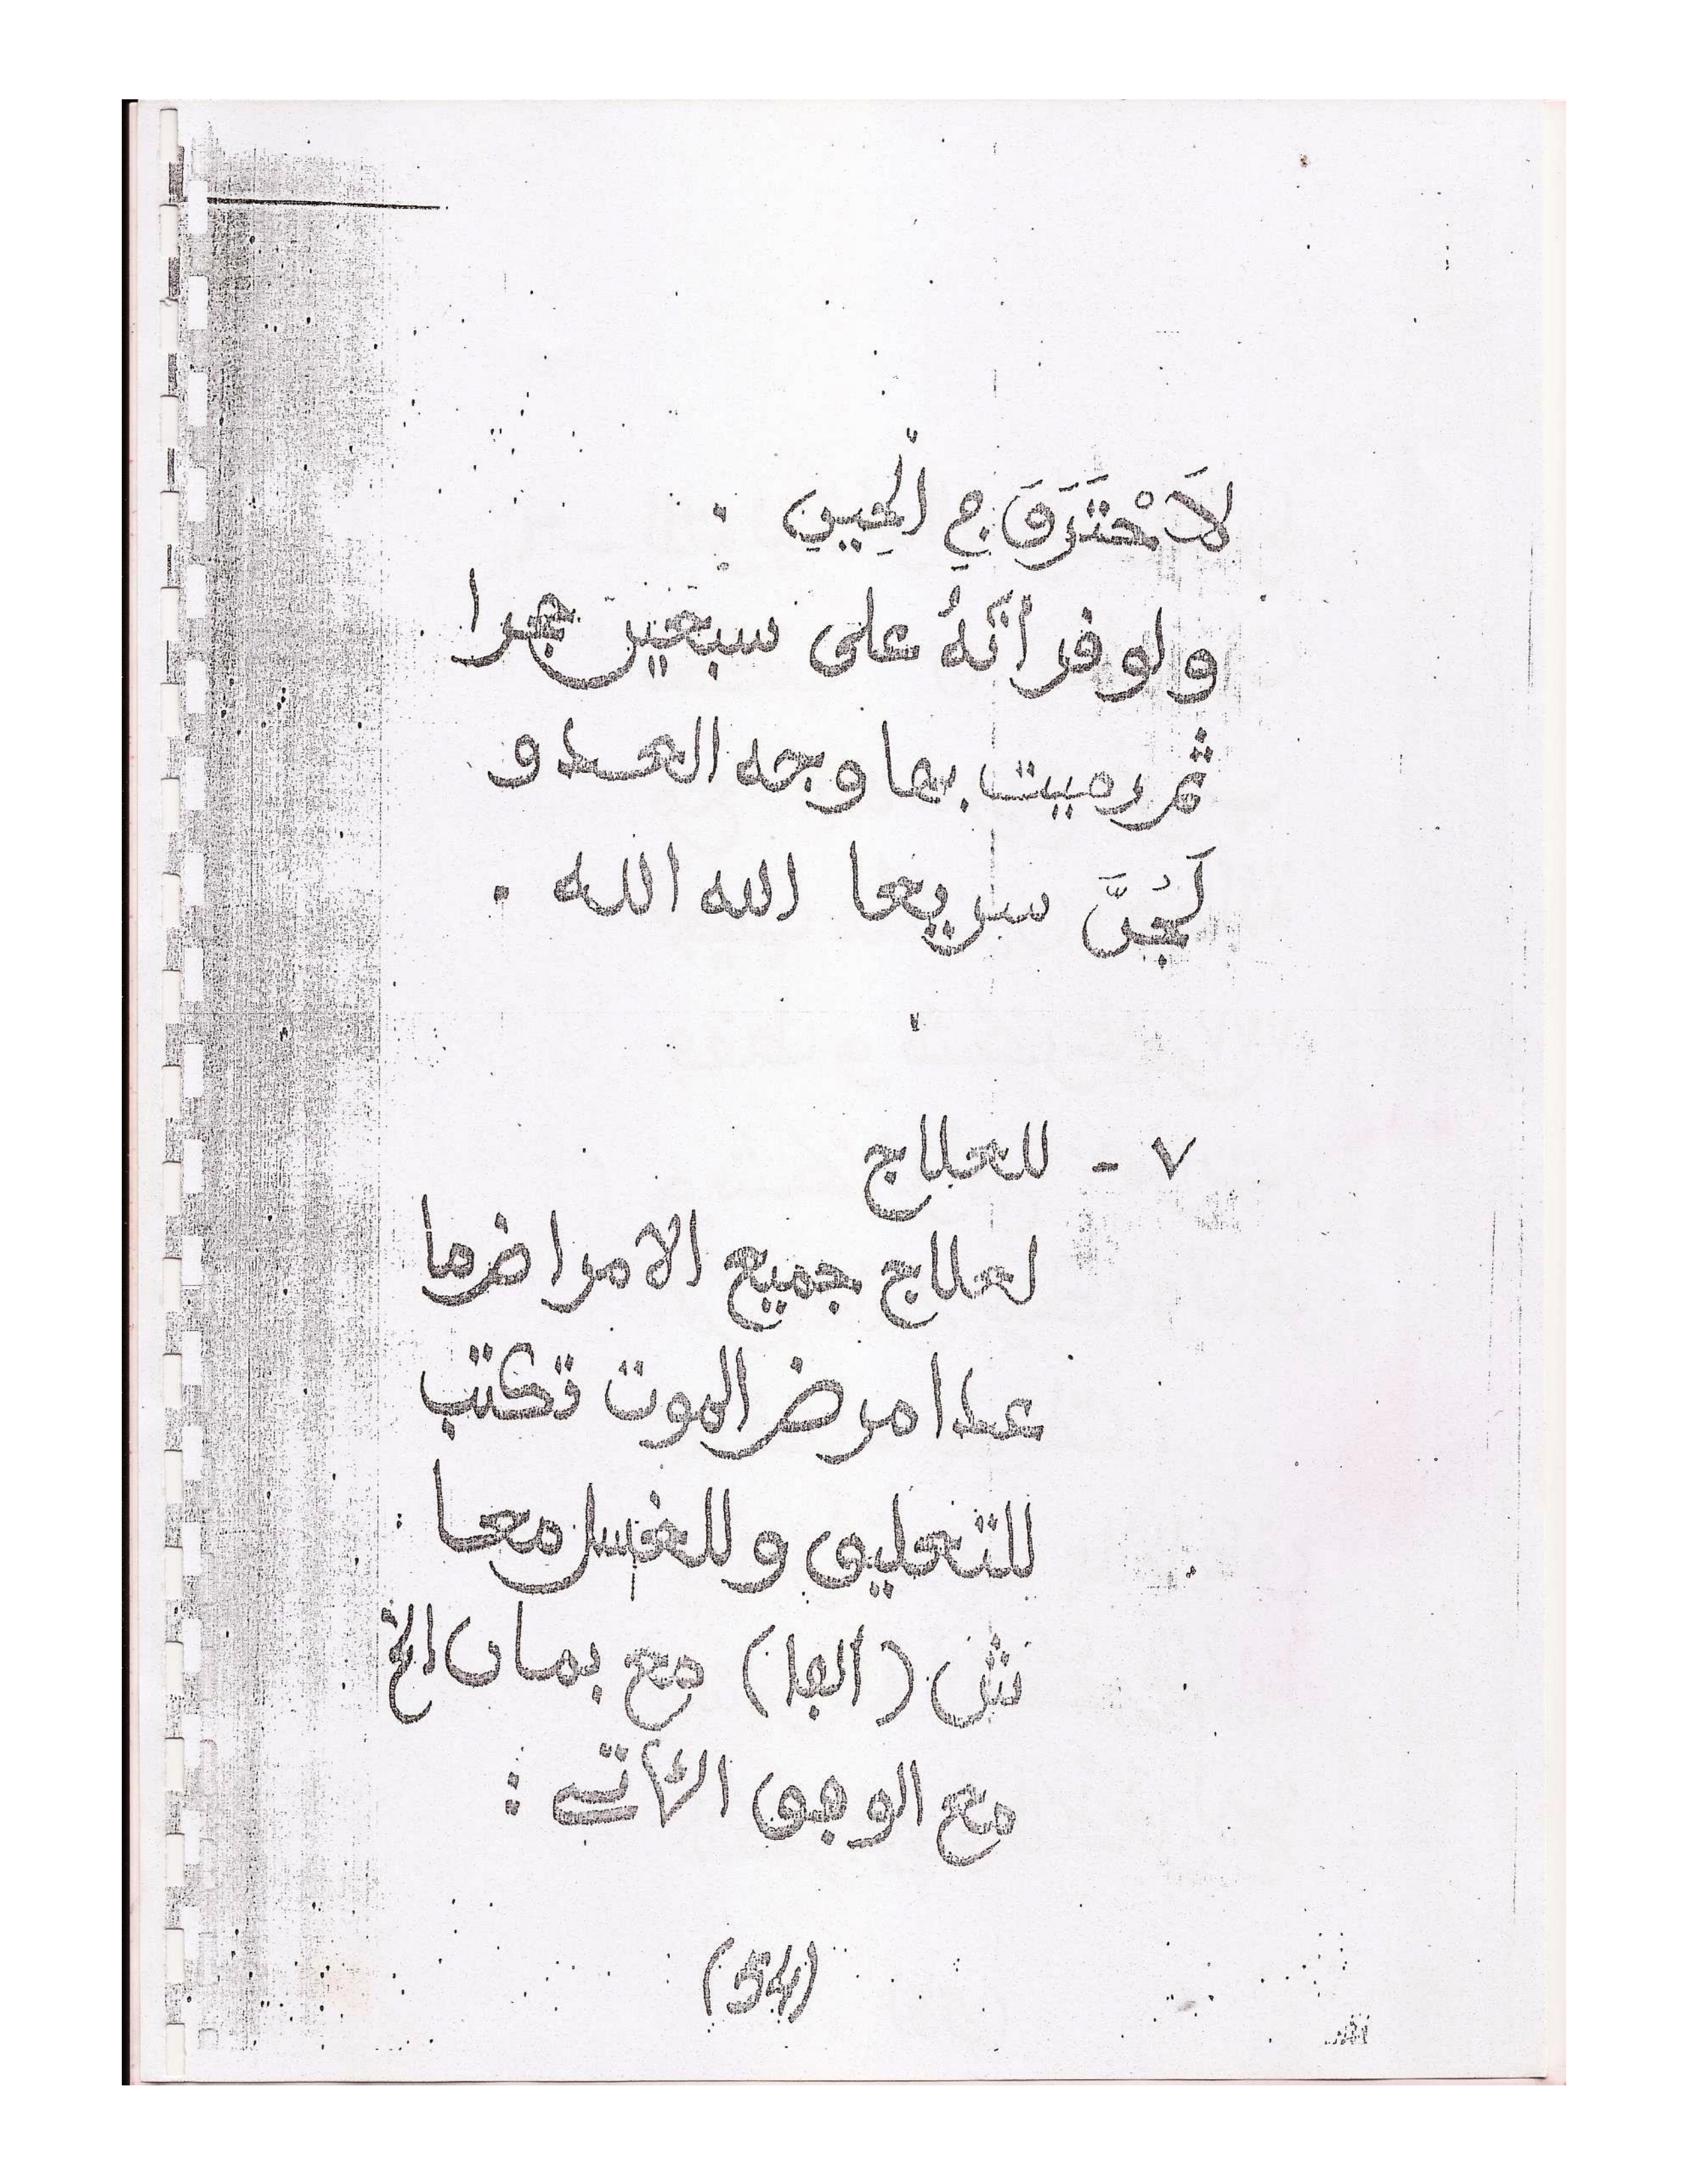 لَاحْتَرَقَ فِي الْحِينِ .
ولو قرأتَهُ على سبعين حجرا
ثم رميت بها وجه العدو
لَجُنَّ سريعا الله الله .
٧ - للعلاج
لعلاج جميع الامراض ما
عدا مرض الموت تكتب
للتعليق وللغسل معا
(الفا) مع بمان الخ
مع الوفق الآتي :
(54)